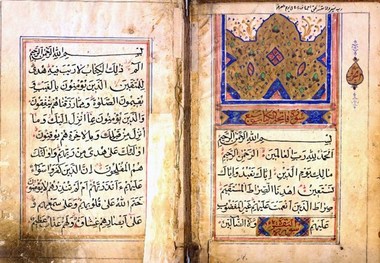 بسم الله الرحمن الرحيم
الحمد لله رب العالمين الرحمن الرحيم
مالك يوم الدين اياك نعبد واياك
نستعين اهدنا الصراط المستقيم
صراط الذين انعمت عليهم غير المغضوب
عليهم ولا الضالين
بسم الله الرحمن الرحيم
الم ذلك الكتاب لا ريب فيه هدى
للمتقين الذين يؤمنون بالغيب و
يقيمون الصلوة ومما رزقناهم ينفقون
والذين يؤمنون بما انزل اليك وما
انزل من قبلك وبالاخرة هم يوقنون
اولئك على هدى من ربهم واولئك
هم المفلحون ان الذين كفروا سواء
عليهم ءانذرتهم ام لم تنذرهم لا يؤمنون
ختم الله على قلوبهم وعلى سمعهم و
على ابصارهم غشاوة ولهم عذاب عظيم